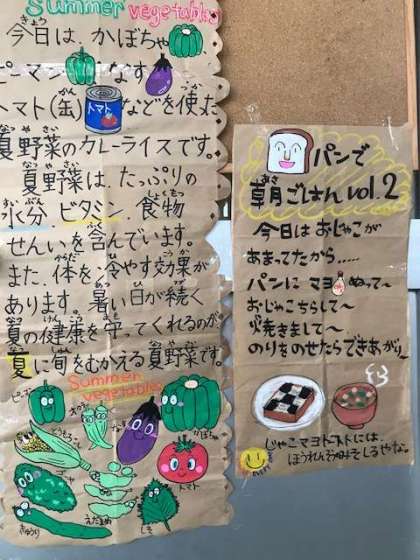 Summer
vegetables
きょう
今日は、かぼちゃ
ピーマン なす
トマト
トマト(缶)などを使った
なつ や さい
夏野菜のカレーライスです。
夏野菜は、たっぷりの
水分 ビタミン、食物
せんいを含んでいます。
また、体を冷やす効果が
あります。暑い日が続く
夏の健康を守ってくれるのが、
夏に旬をむかえる夏野菜です。
Summer
vegetables
ピーマン
とうもろこし
なす
かぼちゃ
ゴーヤ
トマト
きゅうり
えだまめ
しそ
パンで
朝ごはん vol.2
今日はおじゃこが
あまってたから.....
パンに マヨ ぬって〜
おじゃこちらして〜
火焼きまして〜
のりをのせたらできあがり
じゃこマヨトーストには、
ほうれん草みそしるやな。